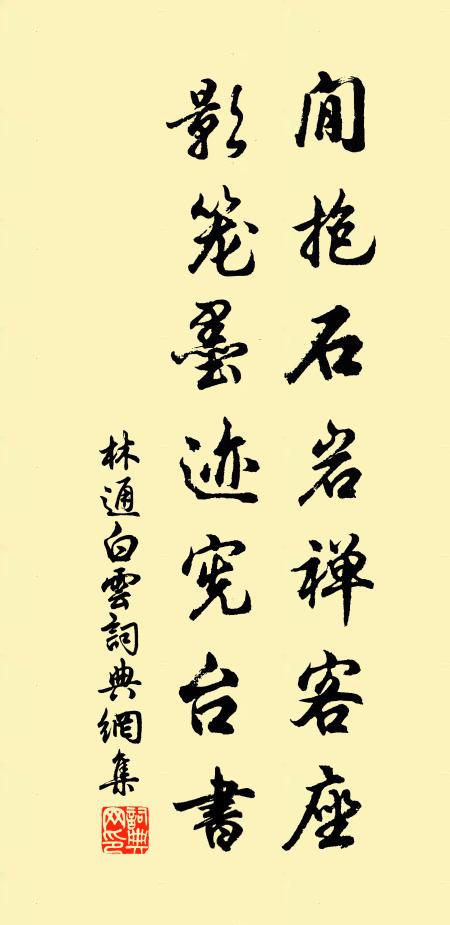 閒抱石岩禅客座
影笼墨迹宪台书
林通白雲詞典網集
詞典网印